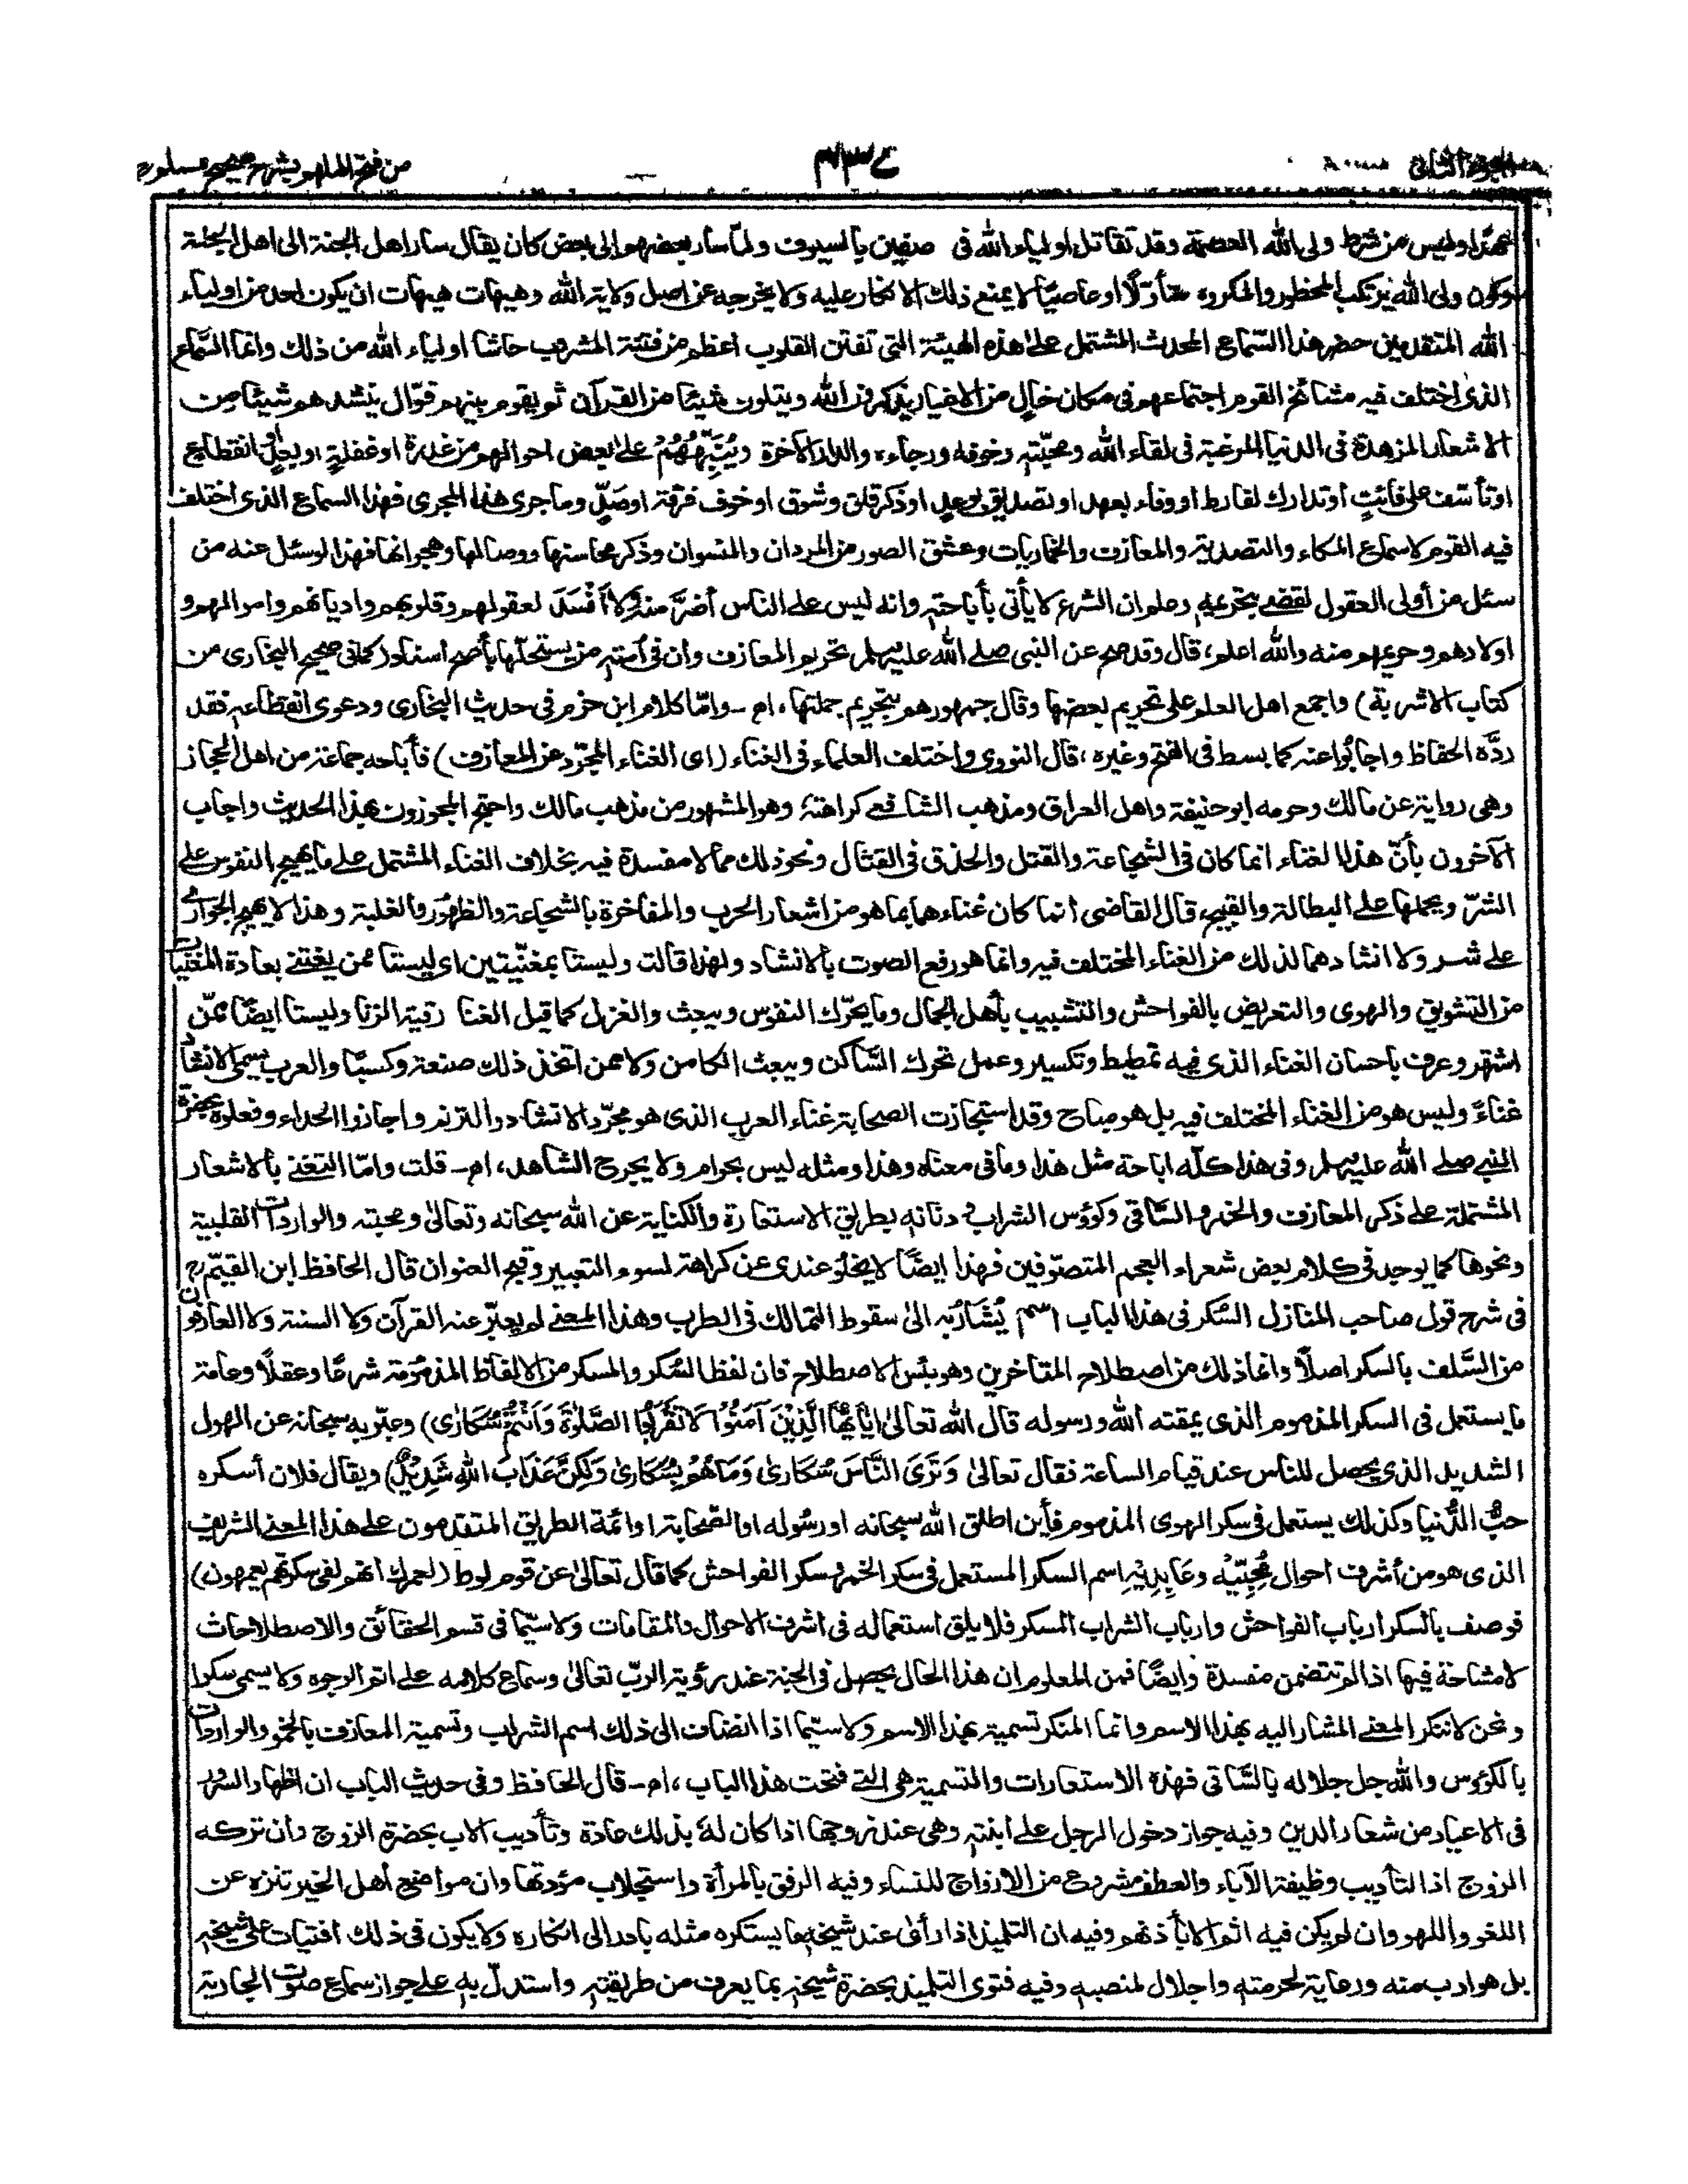 الجزء الثانى ٤٣٤ من فتح الملهم بشرح صحيح مسلم
هذا وليس من شرط ولى الله العصمة وقد تقاتل اولياء الله فى صفين بالسيوف ولمّا سار بعضهم الى بعض كان يقال سار اهل الجنة الى اهل الجنة
وكون ولى الله يرتكب المحظور والمكروه متأوّلًا او عاصيًا لا يمنع ذلك الانكار عليه ولا يخرجه عن اصل ولاية الله وهيهات هيهات ان يكون احد من اولياء
الله المتقدمين حضر هذا السّماع المحدث المشتمل على هذه الهيئة التى تفتن القلوب اعظم من فتنة المشروب حاشا اولياء الله من ذلك وانما السّماع
الذى اختلف فيه مشائخ القوم اجتماعهم فى مكان خالٍ من الاغيار يذكرون الله ويتلون شيئًا من القرآن ثم يقوم بينهم قوّال ينشدهم شيئًا من
الاشعار المزهدة فى الدنيا المرغبة فى لقاء الله ومحبّته وخوفه ورجاءه والدار الآخرة ويُنَبِّهُهُمْ على بعض احوالهم من غدرة او غفلةٍ او بعدٍ او انقطاع
او تأسّف على فائتٍ او تدارك لفارط او وفاء بعهد او تصديق بوعدٍ او ذكر قلق وشوق او خوف فرقة او صدٍّ وما جرى هذا المجرى فهذا السماع الذى اختلف
فيه القوم لا سماع المكاء والتصدية والمعازف والخماريات وعشق الصور من المردان والنسوان وذكر محاسنها ووصالها وهجرانها فهذا لو سئل عنه من
سئل من أولى العقول لقضى بتحريمه وعلم ان الشرع لا يأتى بأباحته وانه ليس على الناس أضرّ منه ولا أَفْسَدَ لعقولهم وقلوبهم واديانهم واموالهم و
اولادهم وحريمهم منه والله اعلم، قال وقد صح عن النبى صلى الله عليه وسلم تحريم المعازف وان فى أمته من يستحلّها بأصح اسناد (كما فى صحيح البخارى من
كتاب الاشربة) واجمع اهل العلم على تحريم بعضها وقال جمهورهم بتحريم جملتها، اھ - وامّا كلام ابن حزم فى حديث البخارى ودعوى انقطاعه فقد
ردَّه الحفاظ واجابُوا عنه كما بسط فى الفتح وغيره، قال النووى واختلف العلماء فى الغناء (اى الغناء المجرّد عن المعازف) فأباحه جماعة من اهل الحجاز
وهى رواية عن مالك وحرمه ابو حنيفة واهل العراق ومذهب الشافعى كراهته وهو المشهور من مذهب مالك واحتج المجوزون بهذا الحديث واجاب
الآخرون بأنّ هذا الغناء انما كان فى الشجاعة والقتل والحذق فى القتال ونحو ذلك مما لا مفسدة فيه بخلاف الغناء المشتمل على ما يهيج النفوس على
الشرّ ويحملها على البطالة والقبيح، قال القاضى انما كان غناءهما بما هو من اشعار الحرب والمفاخرة بالشجاعة والظهور والغلبة وهذا لا يهيج الجوارى
على شر ولا انشادهما لذلك من الغناء المختلف فيه وانما هو رفع الصوت بالانشاد ولهذا قالت وليستا بمغنّيتين اى ليستا ممن يغنى بعادة المغنيات
من التشويق والهوى والتعريض بالفواحش والتشبيب بأهل الجمال وما يحرّك النفوس ويبعث والغزل كما قيل الغنا رقية الزنا وليستا ايضًا ممّن
اشتهر وعرف باحسان الغناء الذى فيه تمطيط وتكسير وعمل تحرك السّاكن ويبعث الكامن ولا ممن اتخذ ذلك صنعة وكسبًا والعرب يسمى الانشاد
غناءً وليس هو من الغناء المختلف فيه بل هو مباح وقد استجازت الصحابة غناء العرب الذى هو مجرّد الانشاد والترنم واجازوا الحداء وفعلوه بحضرة
النبى صلى الله عليه وسلم وفى هذا كلّه اباحة مثل هذا وما فى معناه وهذا ومثله ليس بحرام ولا يجرح الشاهد، اھ - قلت وامّا التغنى بالاشعار
المشتملة على ذكر المعازف والخمر والسّاقى وكؤوس الشراب ودنانه بطريق الاستعارة والكناية عن الله سبحانه وتعالىٰ ومحبته والواردات القلبية
ونحوها كما يوجد فى كلام بعض شعراء العجم المتصوّفين فهذا ايضًا لا يخلُو عندى عن كراهة لسوء التعبير وقبح العنوان قال الحافظ ابن القيّم رح
فى شرح قول صاحب المنازل السُكر فى هذا الباب اسم يُشَارُ به الىٰ سقوط التمالك فى الطرب وهذا المعنى لم يعبّر عنه القرآن ولا السنة ولا العارفون
من السَّلف بالسكر اصلًا وانما ذلك من اصطلاح المتاخرين وهو بئس الاصطلاح فان لفظ السُكر والمسكر من الالفاظ المذمُومة شرعًا وعقلًا وعامة
ما يستعمل فى السكر المذموم الذى يمقته الله ورسوله قال الله تعالىٰ (يَا أَيُّهَا الَّذِيْنَ آمَنُوْا لَا تَقْرَبُوا الصَّلٰوةَ وَاَنْتُمْ سُكَارٰى) وعبّر به سبحانه عن الهول
الشديد الذى يحصل للناس عند قيام الساعة فقال تعالىٰ وَتَرَى النَّاسَ سُكَارىٰ وَمَا هُمْ بِسُكَارىٰ وَلٰكِنَّ عَذَابَ اللهِ شَدِيْدٌ) ويقال فلان أسكره
حبُّ الدُّنيا وكذلك يستعمل فى سكر الهوى المذموم فأين اطلق الله سبحانه او رسُوله او الصّحابة او ائمة الطريق المتقدمون على هذا المعنى الشريف
الذى هو من أشرف احوال مُحِبِّيْهِ وعَابِدِيْهِ اسم السكر المستعمل فى سكر الخمر وسكر الفواحش كما قال تعالىٰ عن قوم لوط (لعمرك انهم لفى سكرتهم يعمهون)
فوصف بالسكر ارباب الفواحش وارباب الشراب المسكر فلا يليق استعماله فى اشرف الاحوال والمقامات ولا سيّما فى قسم الحقائق والاصطلاحات
لا مشاحة فيها اذا لم تتضمن مفسدة وايضًا فمن المعلوم ان هذا الحال يحصل فى الجنة عند رؤية الربّ تعالىٰ وسماع كلامه على اتم الوجوه ولا يسمى سكرا
ونحن لا ننكر المعنى المشار اليه بهذا الاسم وانما المنكر تسميته بهذا الاسم ولا سيّما اذا انضاف الى ذلك اسم الشراب وتسمية المعازف بالخمر والواردات
بالكؤوس والله جل جلاله بالسّاقى فهذه الاستعارات والتسمية هى التى فتحت هذا الباب، اھ - قال الحافظ وفى حديث الباب ان اظهار السُرور
فى الاعياد من شعار الدين وفيه جواز دخول الرجل على ابنته وهى عند زوجها اذا كان لهُ بذلك عادة وتأديب الاب بحضرة الزوج وان تركه
الزوج اذ التأديب وظيفة الآباء والعطف مشروع من الازواج للنساء وفيه الرفق بالمرأة واستجلاب مودتها وان مواضع أهل الخير تنزه عن
اللغو واللهو وان لم يكن فيه اثم الا بأذنهم وفيه ان التلميذ اذا رأى عند شيخه ما يستكره مثله بادر الى انكاره ولا يكون فى ذلك افتيات على شيخه
بل هو ادب منه ورعاية لحرمته واجلال لمنصبه وفيه فتوى التلميذ بحضرة شيخه بما يعرف من طريقته واستدلّ به على جواز سماع صوت الجارية